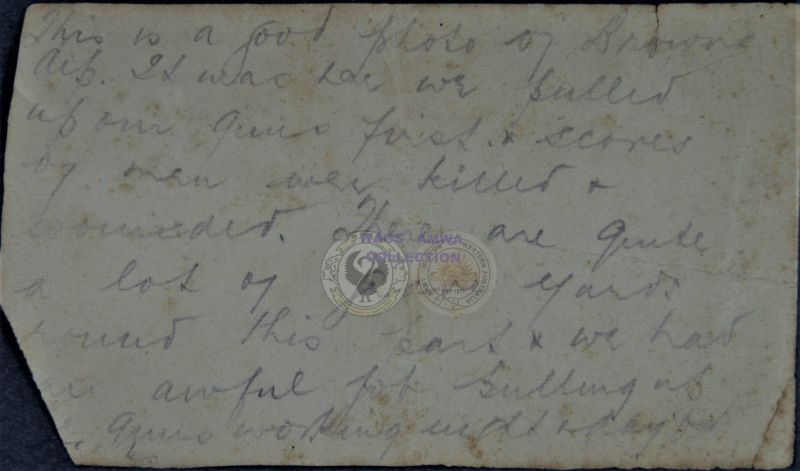 This is a good photo of Browns
Dip. It was here we pulled
up our guns first. & scores
of men wer killed &
wounded. There are quite
a lot of yards
round this part & we had
an awful job pulling up
guns working night & day
WAGS AMWA
COLLECTION